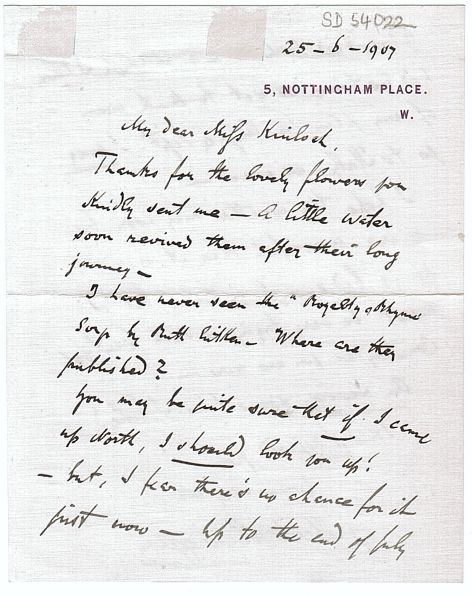 SD 54022
25-6-1907
5, NOTTINGHAM PLACE.
W.
My dear Miss Kinloch,
Thanks for the lovely flowers you
kindly sent me — A little water
soon revived them after their long
journey —
I have never seen the "Royalty & Rhyme
by Ruth — Where are they
published?
You may be quite sure that if I came
up North, I should look you up!
— but, I fear there's no chance for it
just now — up to the end of July